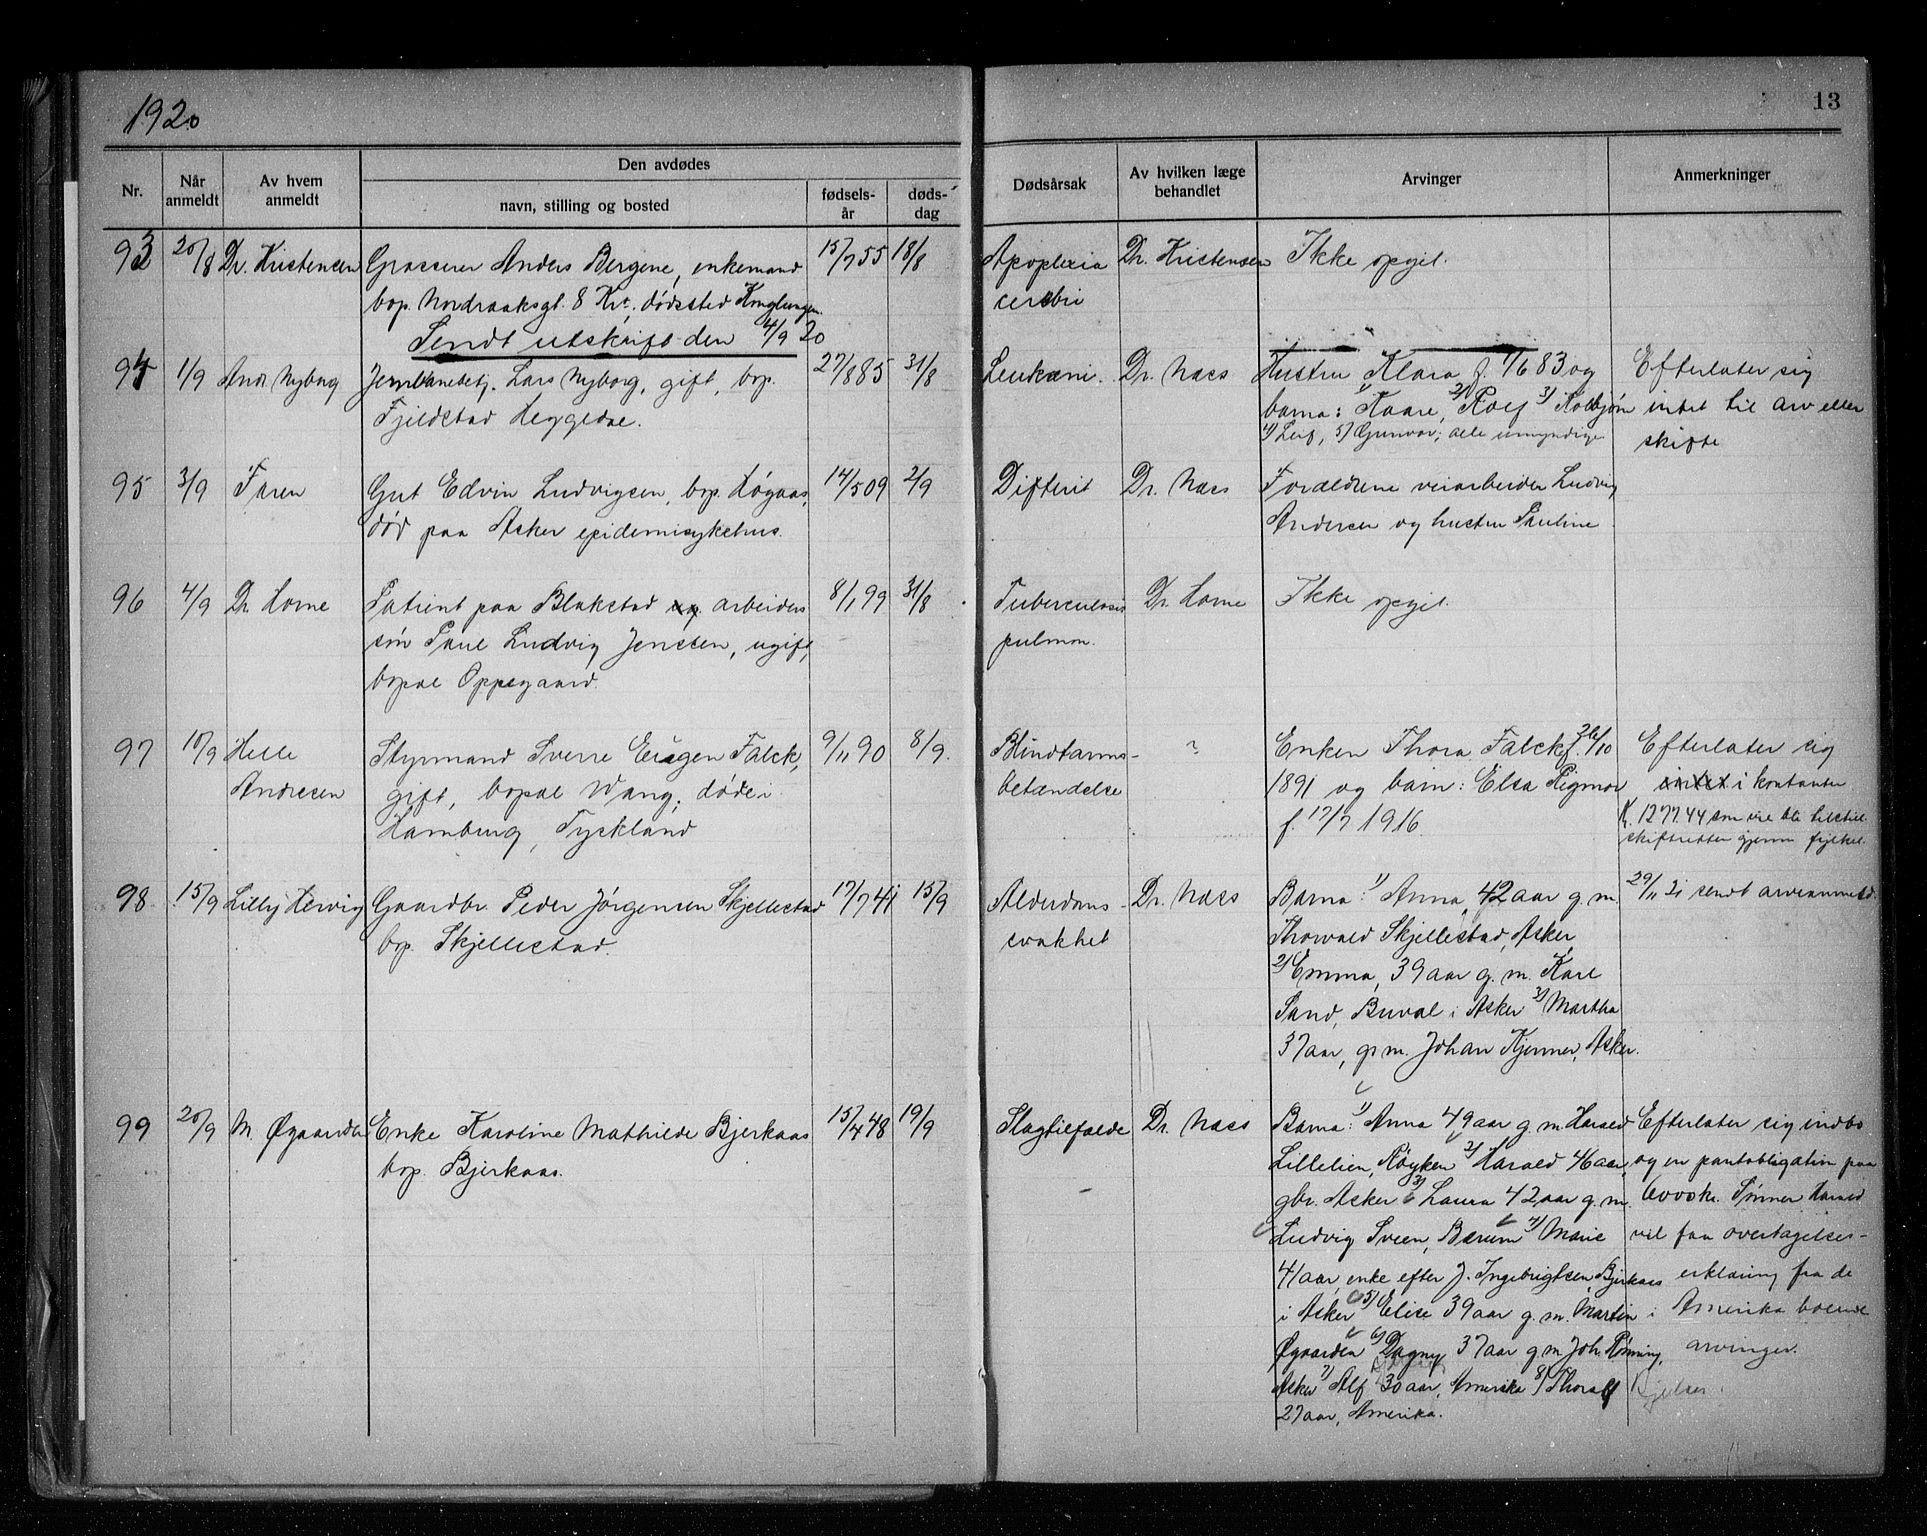 1920
13
Den avdødes
Nr.
Når anmeldt
Av hvem anmeldt
navn, stilling og bosted
fødsels-år
døds-dag
Dødsårsak
Av hvilken læge behandlet
Arvinger
Anmerkninger
93 20/8 Dr. Kristensen Grosserer Anders Bergene, enkemand 15/7 55 18/8 Apoplexia Dr. Kristensen Ikke opgit.
bop. Nordraaksgt. 8 Kr.a, dødssted Konglungen. cerebri
Sendt utskrift den 4/9 20
94 1/9 Andr. Nyborg Jernbanebetj. Lars Nyborg, gift, bop. 27/8 85 31/8 Leukæmi. Dr. Næss Hustru Klara f. 1/6 83 og Efterlater sig
Fjeldstad Heggedal. barna: 1) Kaare, 2) Rolf 3) Kolbjørn intet til arv eller
4) Leif, 5) Gunvor; alle umyndige skifte
95 3/9 Faren Gut Edvin Ludvigsen, bop. Høgaas, 14/5 09 2/9 Difterit Dr. Næss Forældrene veiarbeider Ludvig
død paa Asker epidemisykehus. Andersen og hustru Pauline
96 4/9 Dr. Horne Patient paa Blakstad arbeiders 8/1 99 31/8 Tuberculosis Dr. Horne Ikke opgit.
søn Paul Ludvig Jensen, ugift, pulmon.
bopæl Oppegaard.
97 10/9 Helle Styrmand Sverre Eugen Falck, 9/11 90 8/9. Blindtarms- ? Enken Thora Falck f. 26/10 Efterlater sig
Andresen gift, bopæl Wang; døde i betændelse 1891 og barn: Elsa Rigmor intet i kontanter
Hamburg, Tyskland f. 17/7 1916. Kr. 1277.44 som vil bli tilstil.
skifteretten gjennem fylket.
98 15/9 Lilly Hervig Gaardbr. Peder Jørgensen Skjellestad 17/7 41 15/9 Alderdoms- Dr. Næss Barna: 1) Anna, 42 aar g. m. 29/11 21 sendt arveanmeld.
bop. Skjellestad. svakhet Thorvald Skjellestad, Asker,
2) Emma, 39 aar g. m. Karl
Sand, Buval i Asker 3) Martha
37 aar, g. m. Johan Kjenner, Asker.
99 20/9 M. Øgaarden Enke Karoline Mathilde Bjerkaas 15/4 48 19/9 Slagtilfælde Dr. Næss Barna: 1) Anna 49 aar g. m. Harald Efterlater sig indbo
bop. Bjerkaas. Lillelien, Røyken 2) Harald 46 aar, og en pantobligation paa
gbr. Asker 3) Laura 42 aar g. m. 6000 kr. Sønnen Harald
Ludvig Sveen, Bærum 4) Marie vil faa overtagelses-
41 aar, enke efter J. Ingebrigtsen, Bjerkaas erklæring fra de
i Asker 5) Elise 39 aar g. m. Martin i Amerika boende
Øgaarden 6) Dagny 37 aar g. m. Joh. Rønning, arvinger.
Asker 7) Alf 30 aar, Amerika 8) Thoralf
27 aar, Amerika.